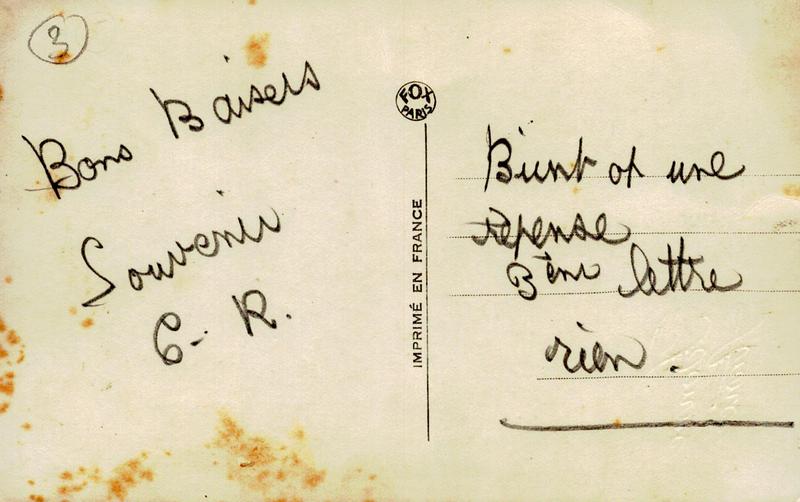 3
Bons Baisers
Souvenir
G- R.
FOX
PARIS
IMPRIMÉ EN FRANCE
une
réponse
3ème lettre
rien.